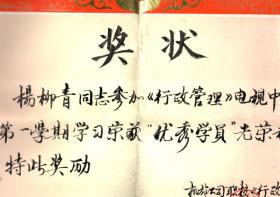 奖状
楊柳青同志参加《行政管理》电视中
第一學期学习荣获“优秀学員”光荣
特此奖励
《行政